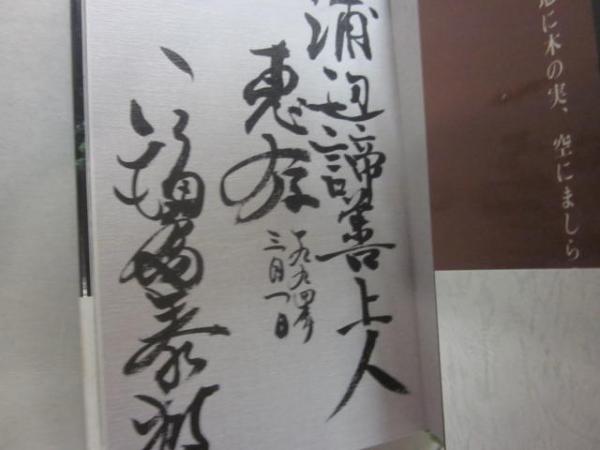 に木の実、空にましら
浦辺諦善上人
恵存
一九九四年
三月一日
福島泰樹